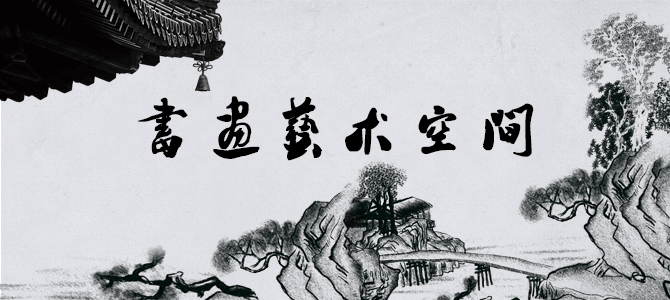 書畫藝术空間